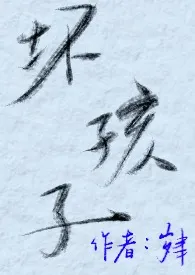 坏
孩
子
作者：